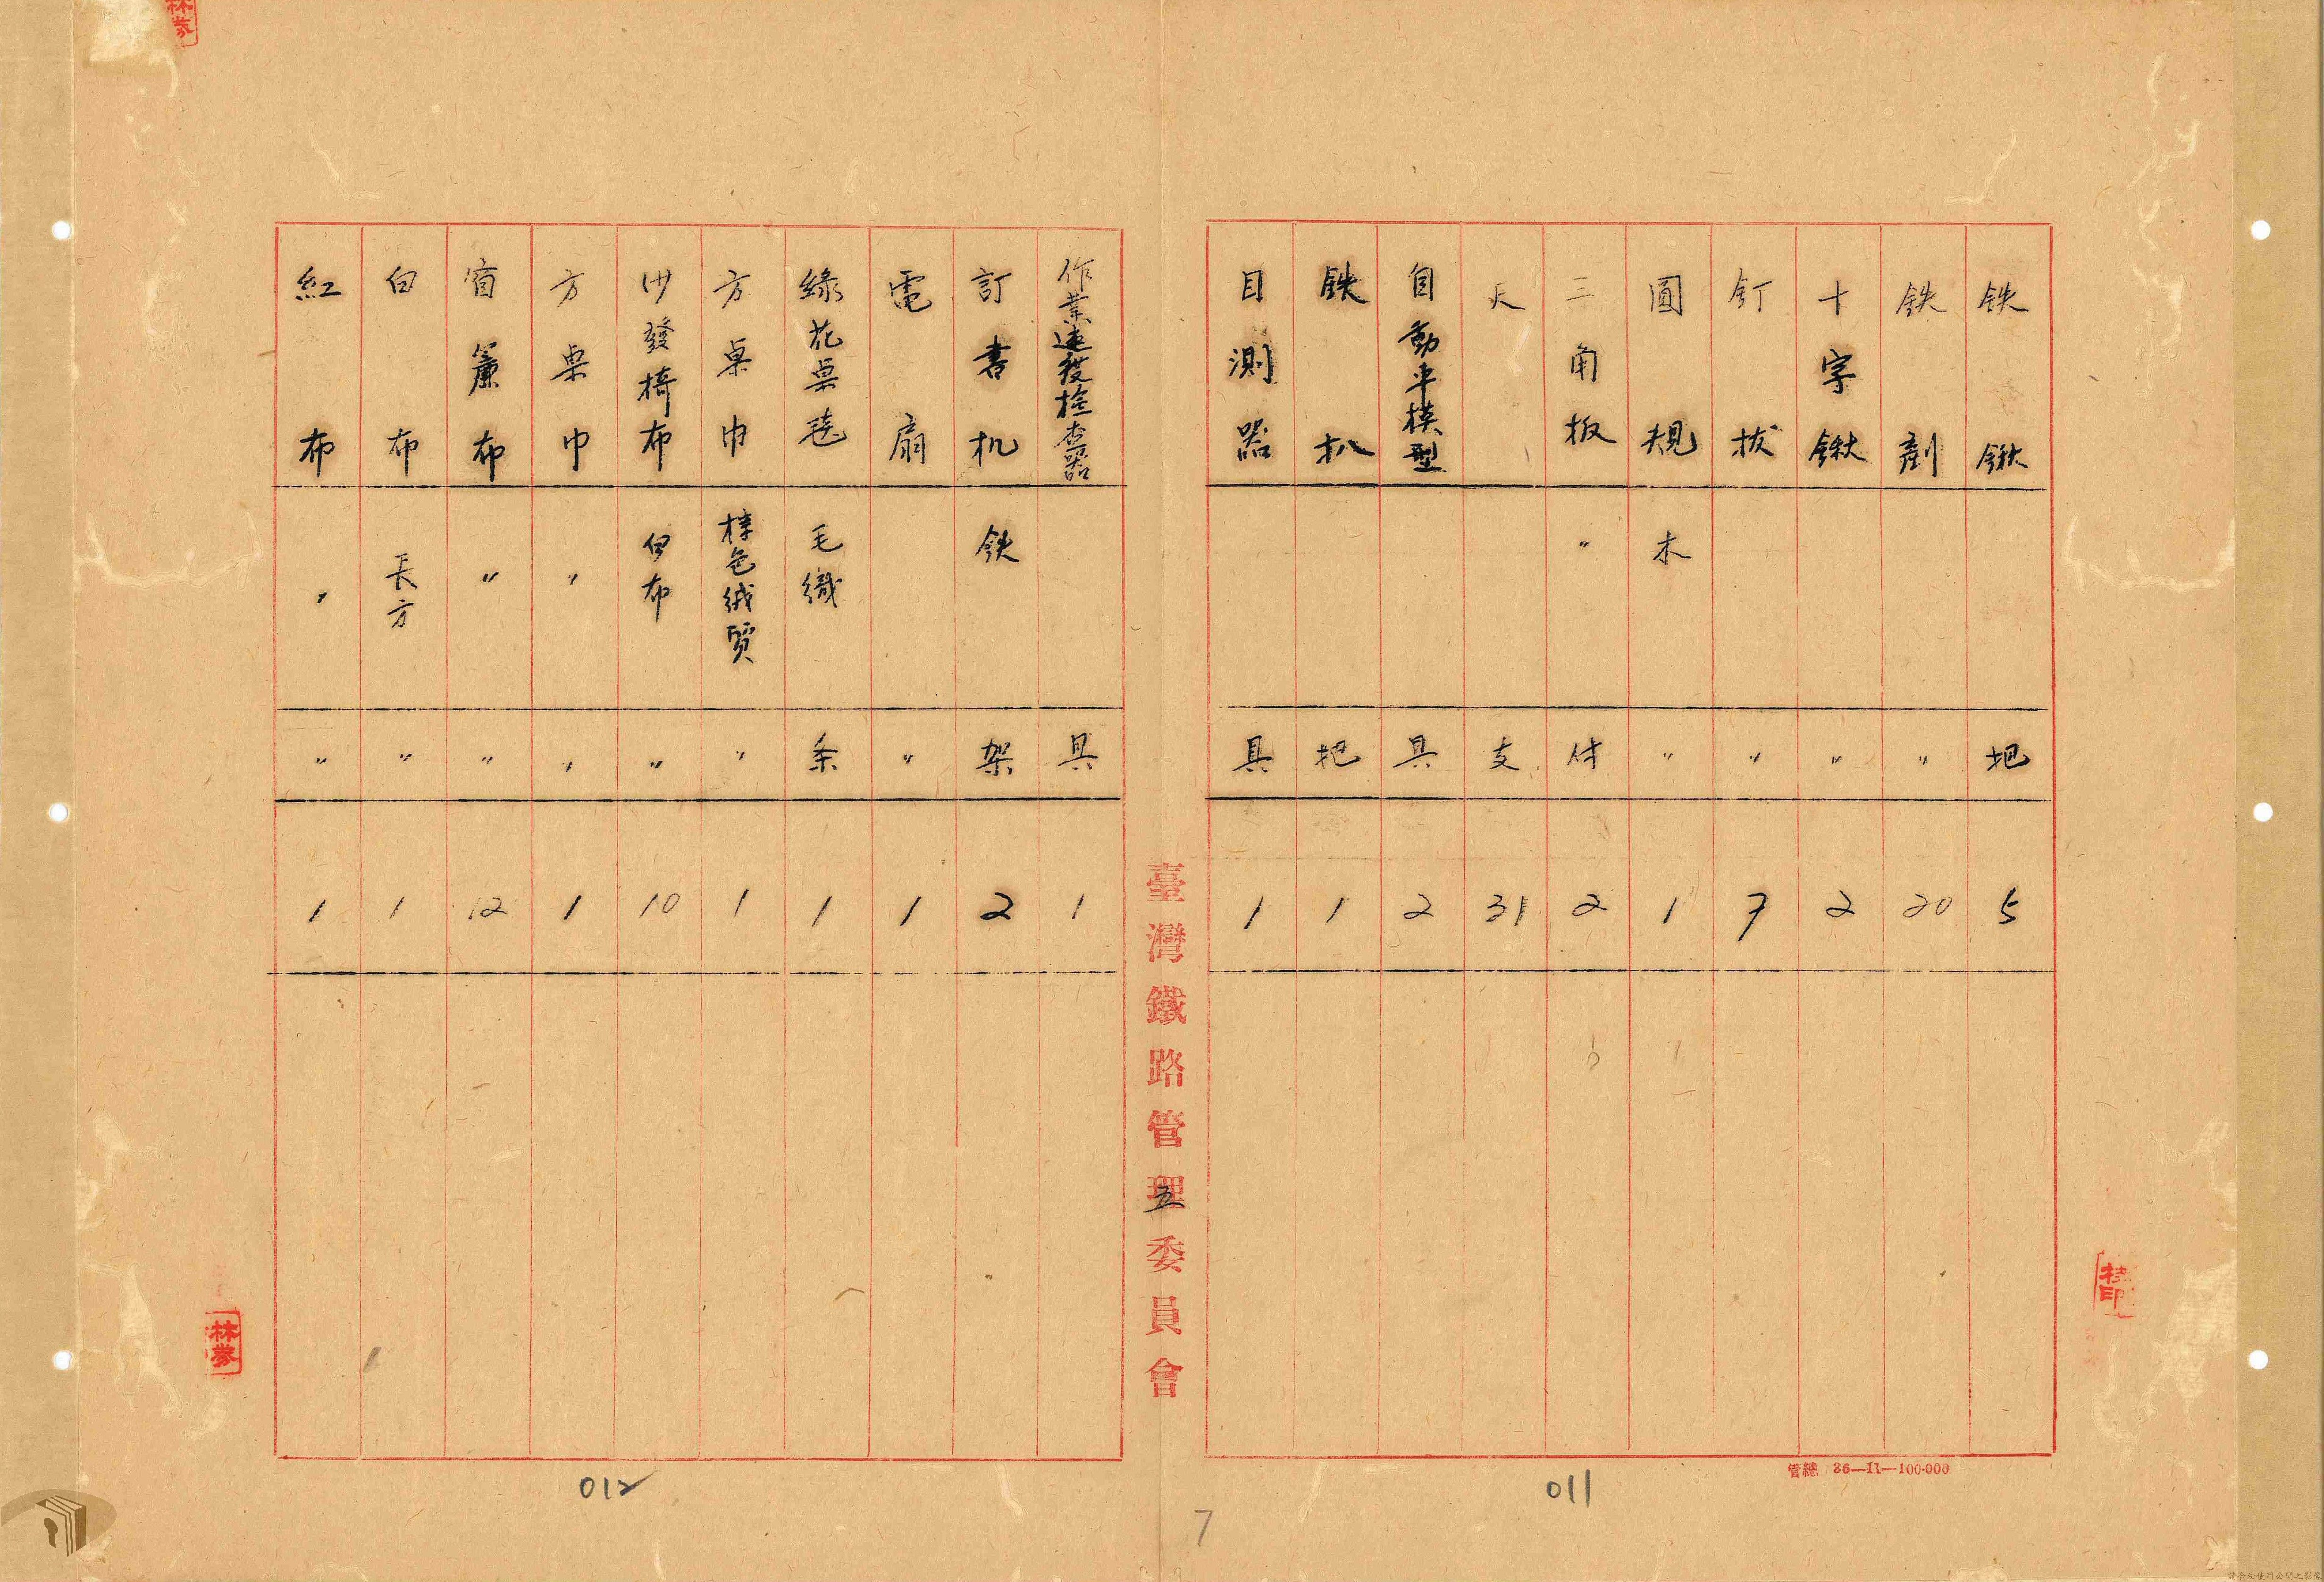 鉄鍬 把 5
鉄剷 〃 20
十字鍬 〃 2
釘拔 〃 7
圓規 木 〃 1
三角板 〃 付 2
尺 支 31
自動車模型 具 2
鉄扒 把 1
目測器 具 1
管總 36—11—100.000
011
臺灣鐵路管理委員會
五
7
作業速度檢查器 具 1
訂書机 鉄 架 2
電扇 〃 1
綠花桌毯 毛織 条 1
方桌巾 棕色絨質 〃 1
沙發椅布 白布 〃 10
方桌巾 〃 〃 1
窗簾布 〃 〃 12
白布 長方 〃 1
紅布 〃 〃 1
012